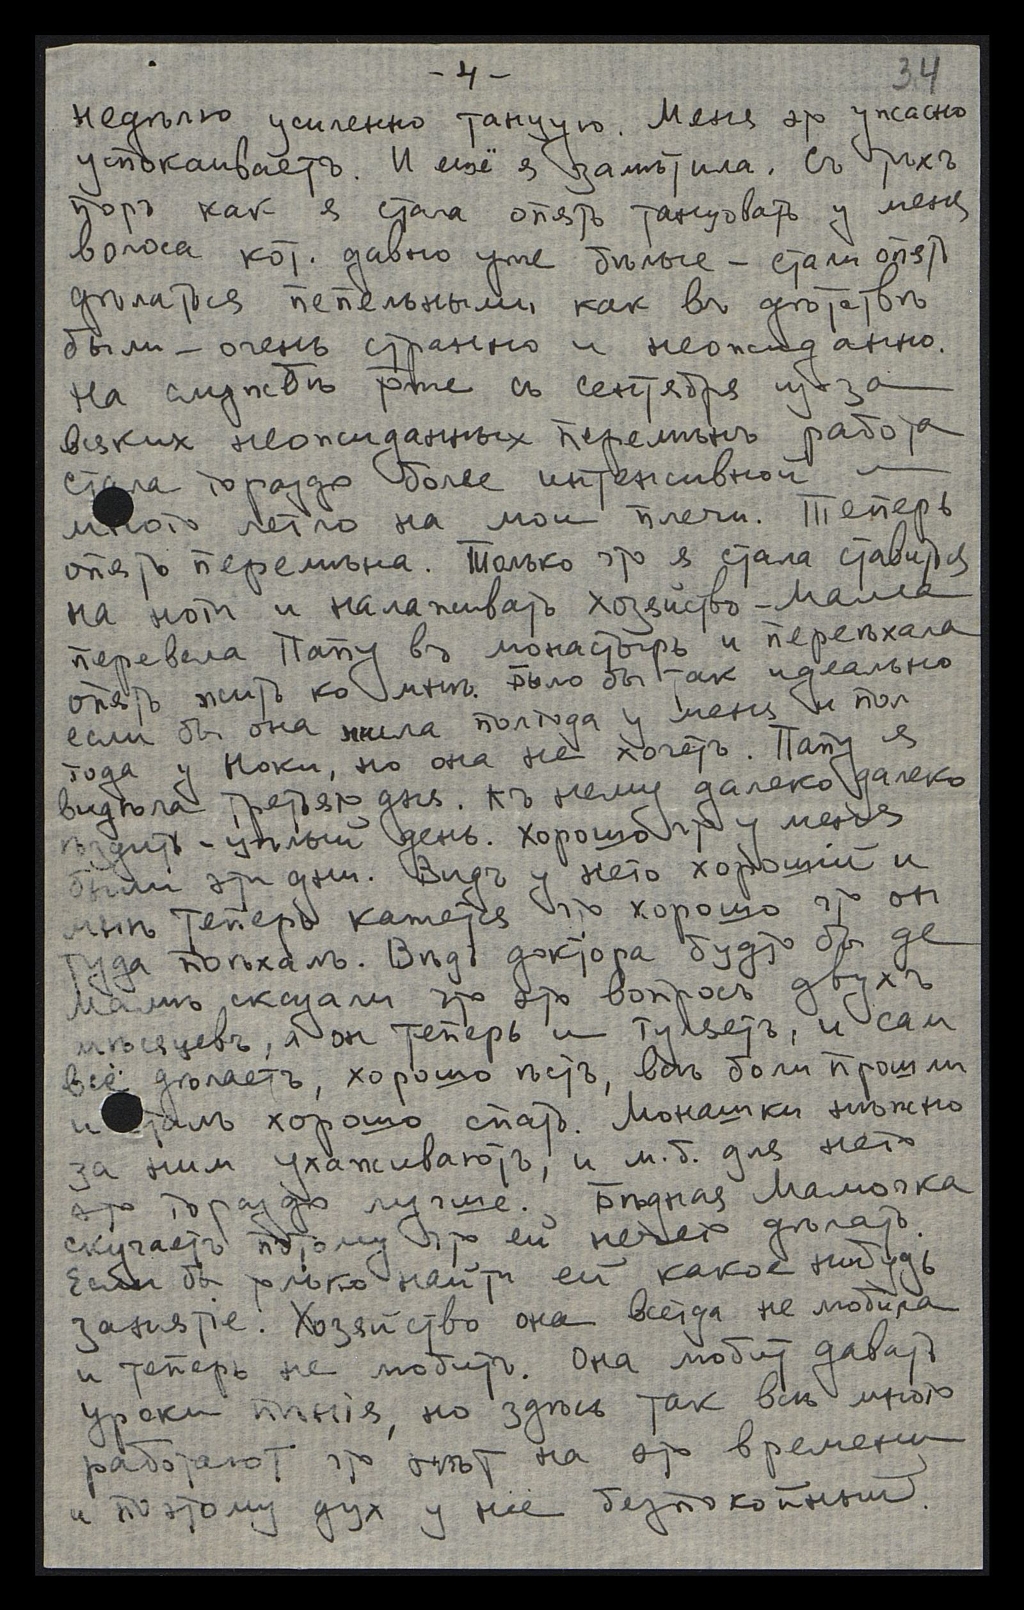 - 4 -
34
недѣлю усиленно танцую. Меня это ужасно
успокаиваетъ. И ещё я замѣтила. Съ тѣхъ
поръ как я стала опять танцовать у меня
волоса кот. давно уже бѣлые – стали опять
дѣлаться пепельными как въ дѣтствѣ
были – очень странно и неожиданно.
На службѣ тоже съ сентября из-за
всяких неожиданных перемѣнъ работа
стала гораздо более интенсивной и
много легло на мои плечи. Теперь
опять перемѣна. Только что я стала ставиться
на ноги и налаживать хозяйство – Мама
перевела Папу въ монастырь и переѣхала
опять жить ко мнѣ. Было бы так идеально
если бы она жила полгода у меня и пол
года у Ноки, но она не хочетъ. Папу я
видѣла третьяго дня. Къ нему далеко далеко
ѣздить – цѣлый день. Хорошо что у меня
были эти дни. Видъ у него хорошій и
мнѣ теперь кажется что хорошо что он
туда поѣхалъ. Вѣдь доктора будто бы де
Мамѣ сказали что это вопросъ двухъ
мѣсяцевъ, а он теперь и гуляетъ, и сам
всё дѣлаетъ, хорошо ѣстъ, всѣ боли прошли
и сталъ хорошо спать. Монашки нѣжно
за ним ухаживаютъ, и м.б. для него
это гораздо лучше. Бѣдная Мамочка
скучаетъ потому что ей нечего дѣлать.
Если бы только найти ей какое нибудь
занятіе. Хозяйство она всегда не любила
и теперь не любитъ. Она любит давать
уроки пѣнія, но здѣсь так всѣ много
работают что нѣт на это времени
и поэтому дух у неё безпокойный.